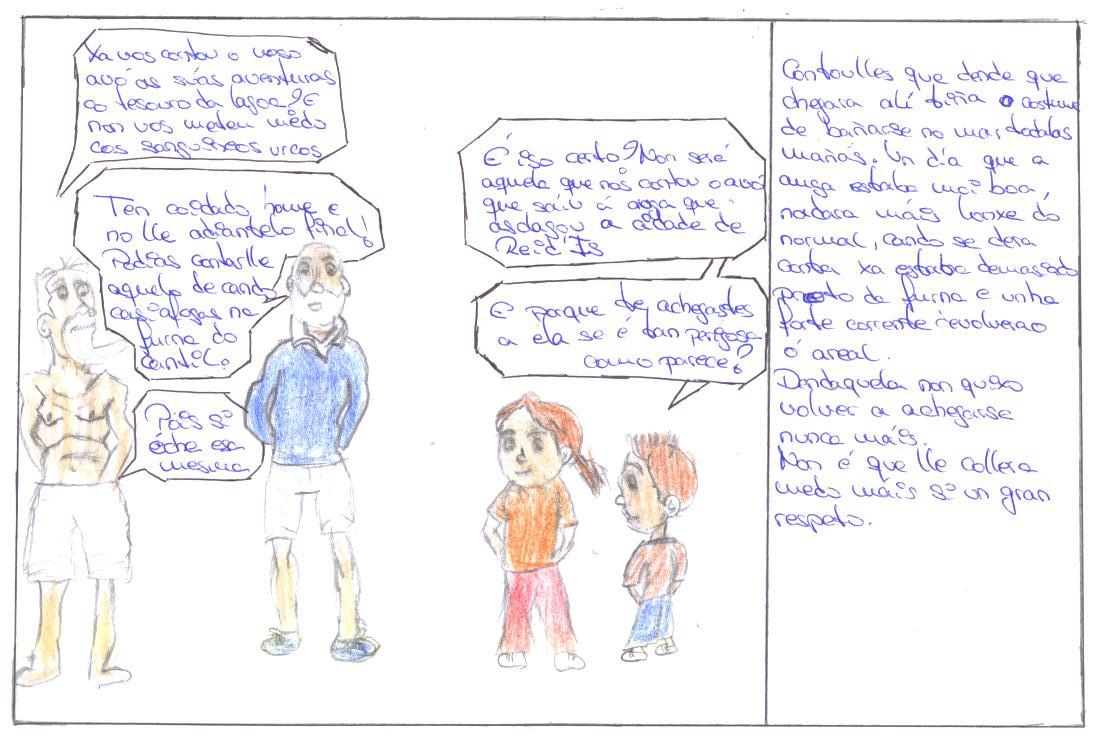 Xa vos contou o voso
avó as súas aventuras
co tesouro da lagoa? E
non vos meteu mêdo
cos sanguiñeos urcos
Ten coidado home e
no lle adiantelo final!
Podías contarlle
aquelo de cando
casi afogas na
furna do
cantil?
Pois si
éche esa
mesma
É iso certo? Non será
aquela que nos contou o avó
que saíu á auga que
asolagou a cidade de
Reid'Is
E porque te achegastes
a ela se é tan perigosa
como parece?
Contoulles que dende que
chegara alí tiña o costume
de bañarse no mar tódalas
mañás. Un día que a
auga estaba moi boa,
nadara máis lonxe do
normal, cando se dera
conta xa estaba demasiado
preto da furna e unha
forte corrente revolverao
ó areal.
Dendaquela non quixo
volver a achegarse
nunca máis.
Non é que lle collera
medo máis si un gran
respeto.